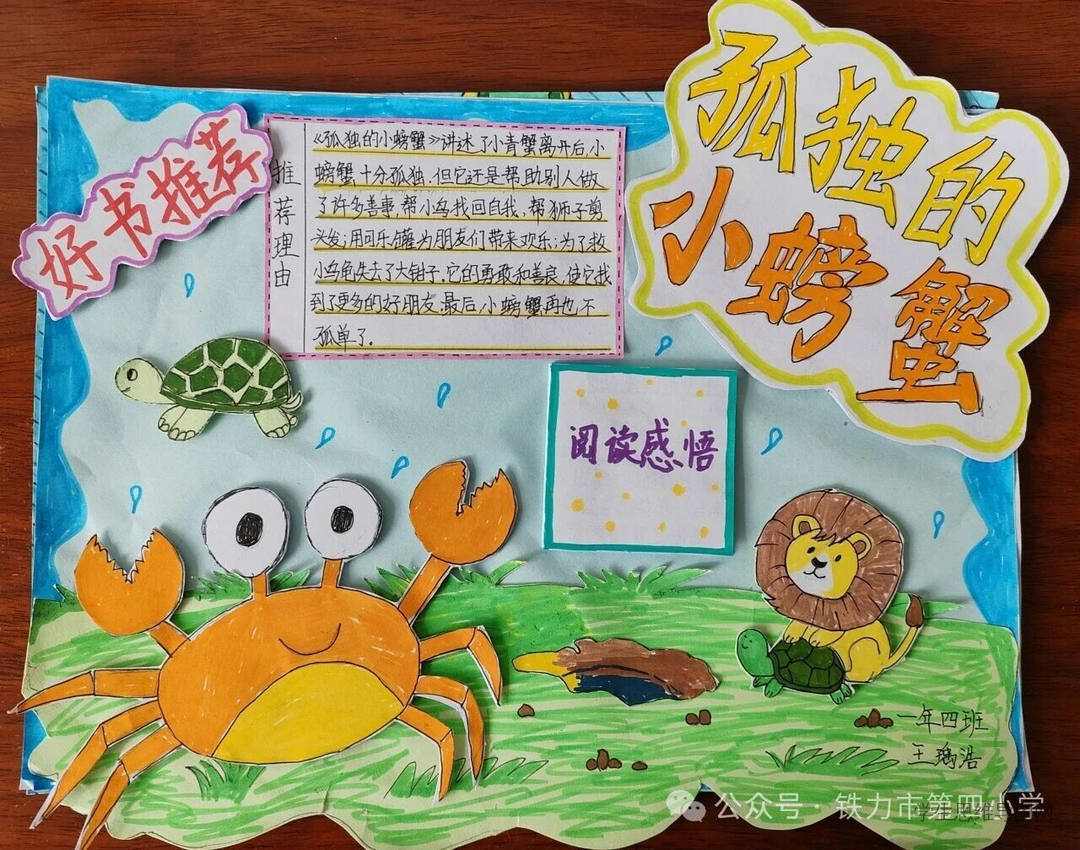 孤独的
小螃蟹
好书推荐
推荐理由
《孤独的小螃蟹》讲述了小青蟹离开后,小
螃蟹十分孤独,但它还是帮助别人做
了许多善事,帮小鸟找回自我,帮狮子剪
头发;用可乐罐为朋友们带来欢乐;为了救
小乌龟失去了大钳子.它的勇敢和善良,使它找
到了更多的好朋友.最后,小螃蟹再也不
孤单了.
阅读感悟
一年四班
王瑀浩
公众号·铁力市第四小学
学生思维导